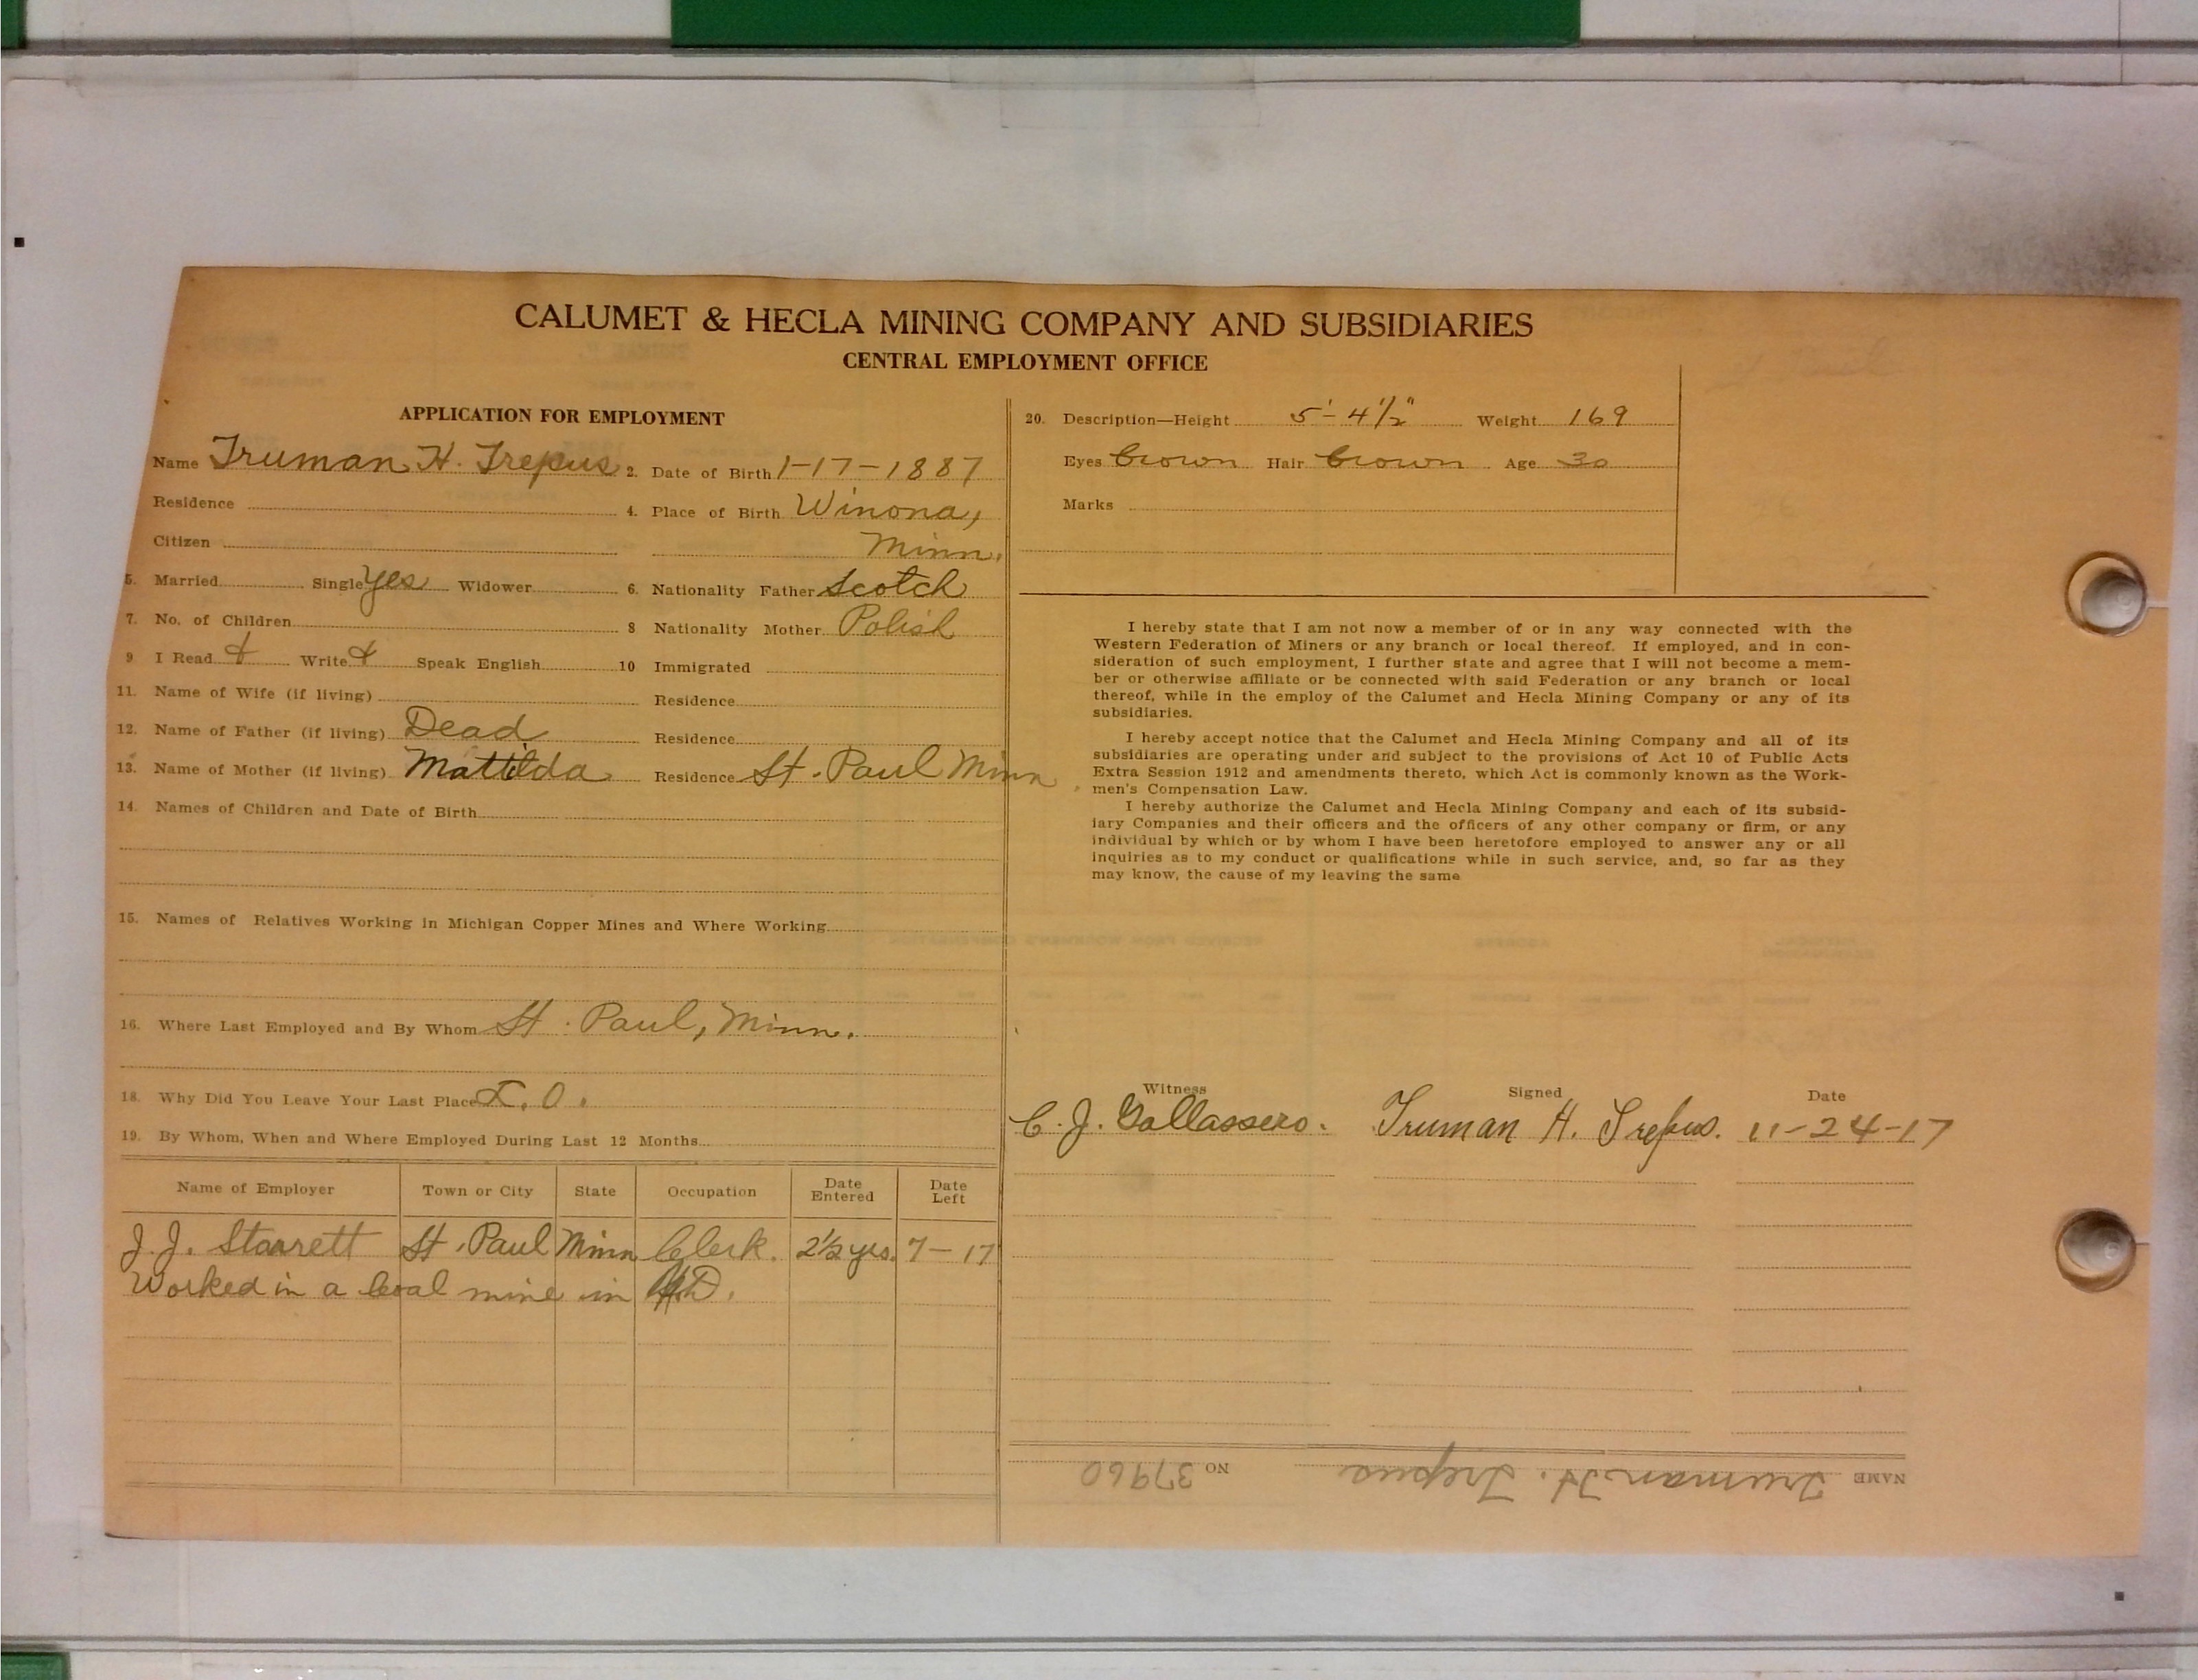 CALUMET & HECLA MINING COMPANY AND SUBSIDIARIES
CENTRAL EMPLOYMENT OFFICE
APPLICATION FOR EMPLOYMENT
Name Truman H. Trepus 2. Date of Birth 1-17-1887
Residence 4. Place of Birth Winona,
Citizen Minn.
5. Married Single Yes Widower 6. Nationality Father Scotch
7. No. of Children 8 Nationality Mother Polish
9 I Read Write Speak English 10 Immigrated
11. Name of Wife (if living) Residence
12. Name of Father (if living) Dead Residence
13. Name of Mother (if living) Mattilda Residence St. Paul Minn
14. Names of Children and Date of Birth
15. Names of Relatives Working in Michigan Copper Mines and Where Working
16. Where Last Employed and By Whom St. Paul, Minn.
18. Why Did You Leave Your Last Place O.
19. By Whom, When and Where Employed During Last 12 Months
Name of Employer Town or City State Occupation Date Entered Date Left
J. J. Starrett St. Paul Minn Clerk. 2½ yrs. 7-17
Worked in a coal mine in D.
20. Description—Height 5'-4½" Weight 169
Eyes Brown Hair Brown Age 30
Marks
I hereby state that I am not now a member of or in any way connected with the
Western Federation of Miners or any branch or local thereof. If employed, and in con-
sideration of such employment, I further state and agree that I will not become a mem-
ber or otherwise affiliate or be connected with said Federation or any branch or local
thereof, while in the employ of the Calumet and Hecla Mining Company or any of its
subsidiaries.
I hereby accept notice that the Calumet and Hecla Mining Company and all of its
subsidiaries are operating under and subject to the provisions of Act 10 of Public Acts
Extra Session 1912 and amendments thereto, which Act is commonly known as the Work-
men's Compensation Law.
I hereby authorize the Calumet and Hecla Mining Company and each of its subsid-
iary Companies and their officers and the officers of any other company or firm, or any
individual by which or by whom I have been heretofore employed to answer any or all
inquiries as to my conduct or qualifications while in such service, and, so far as they
may know, the cause of my leaving the same
Witness Signed Date
C. J. Gallassero. Truman H. Trepus. 11-24-17
NAME Truman H. Trepus NO 37960